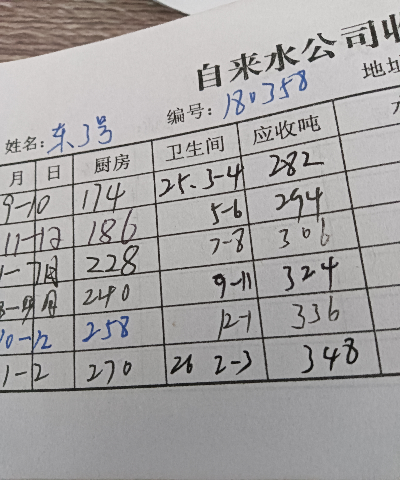 自来水公司收
姓名: 东3号 编号: 180358 地址
月 日 厨房 卫生间 应收吨
9-10 174 25. 3-4 282
11-12 186 5-6 294
1-7月 228 7-8 306
月 240 9-11 324
10-12 258 12-1 336
1-2 270 26 2-3 348